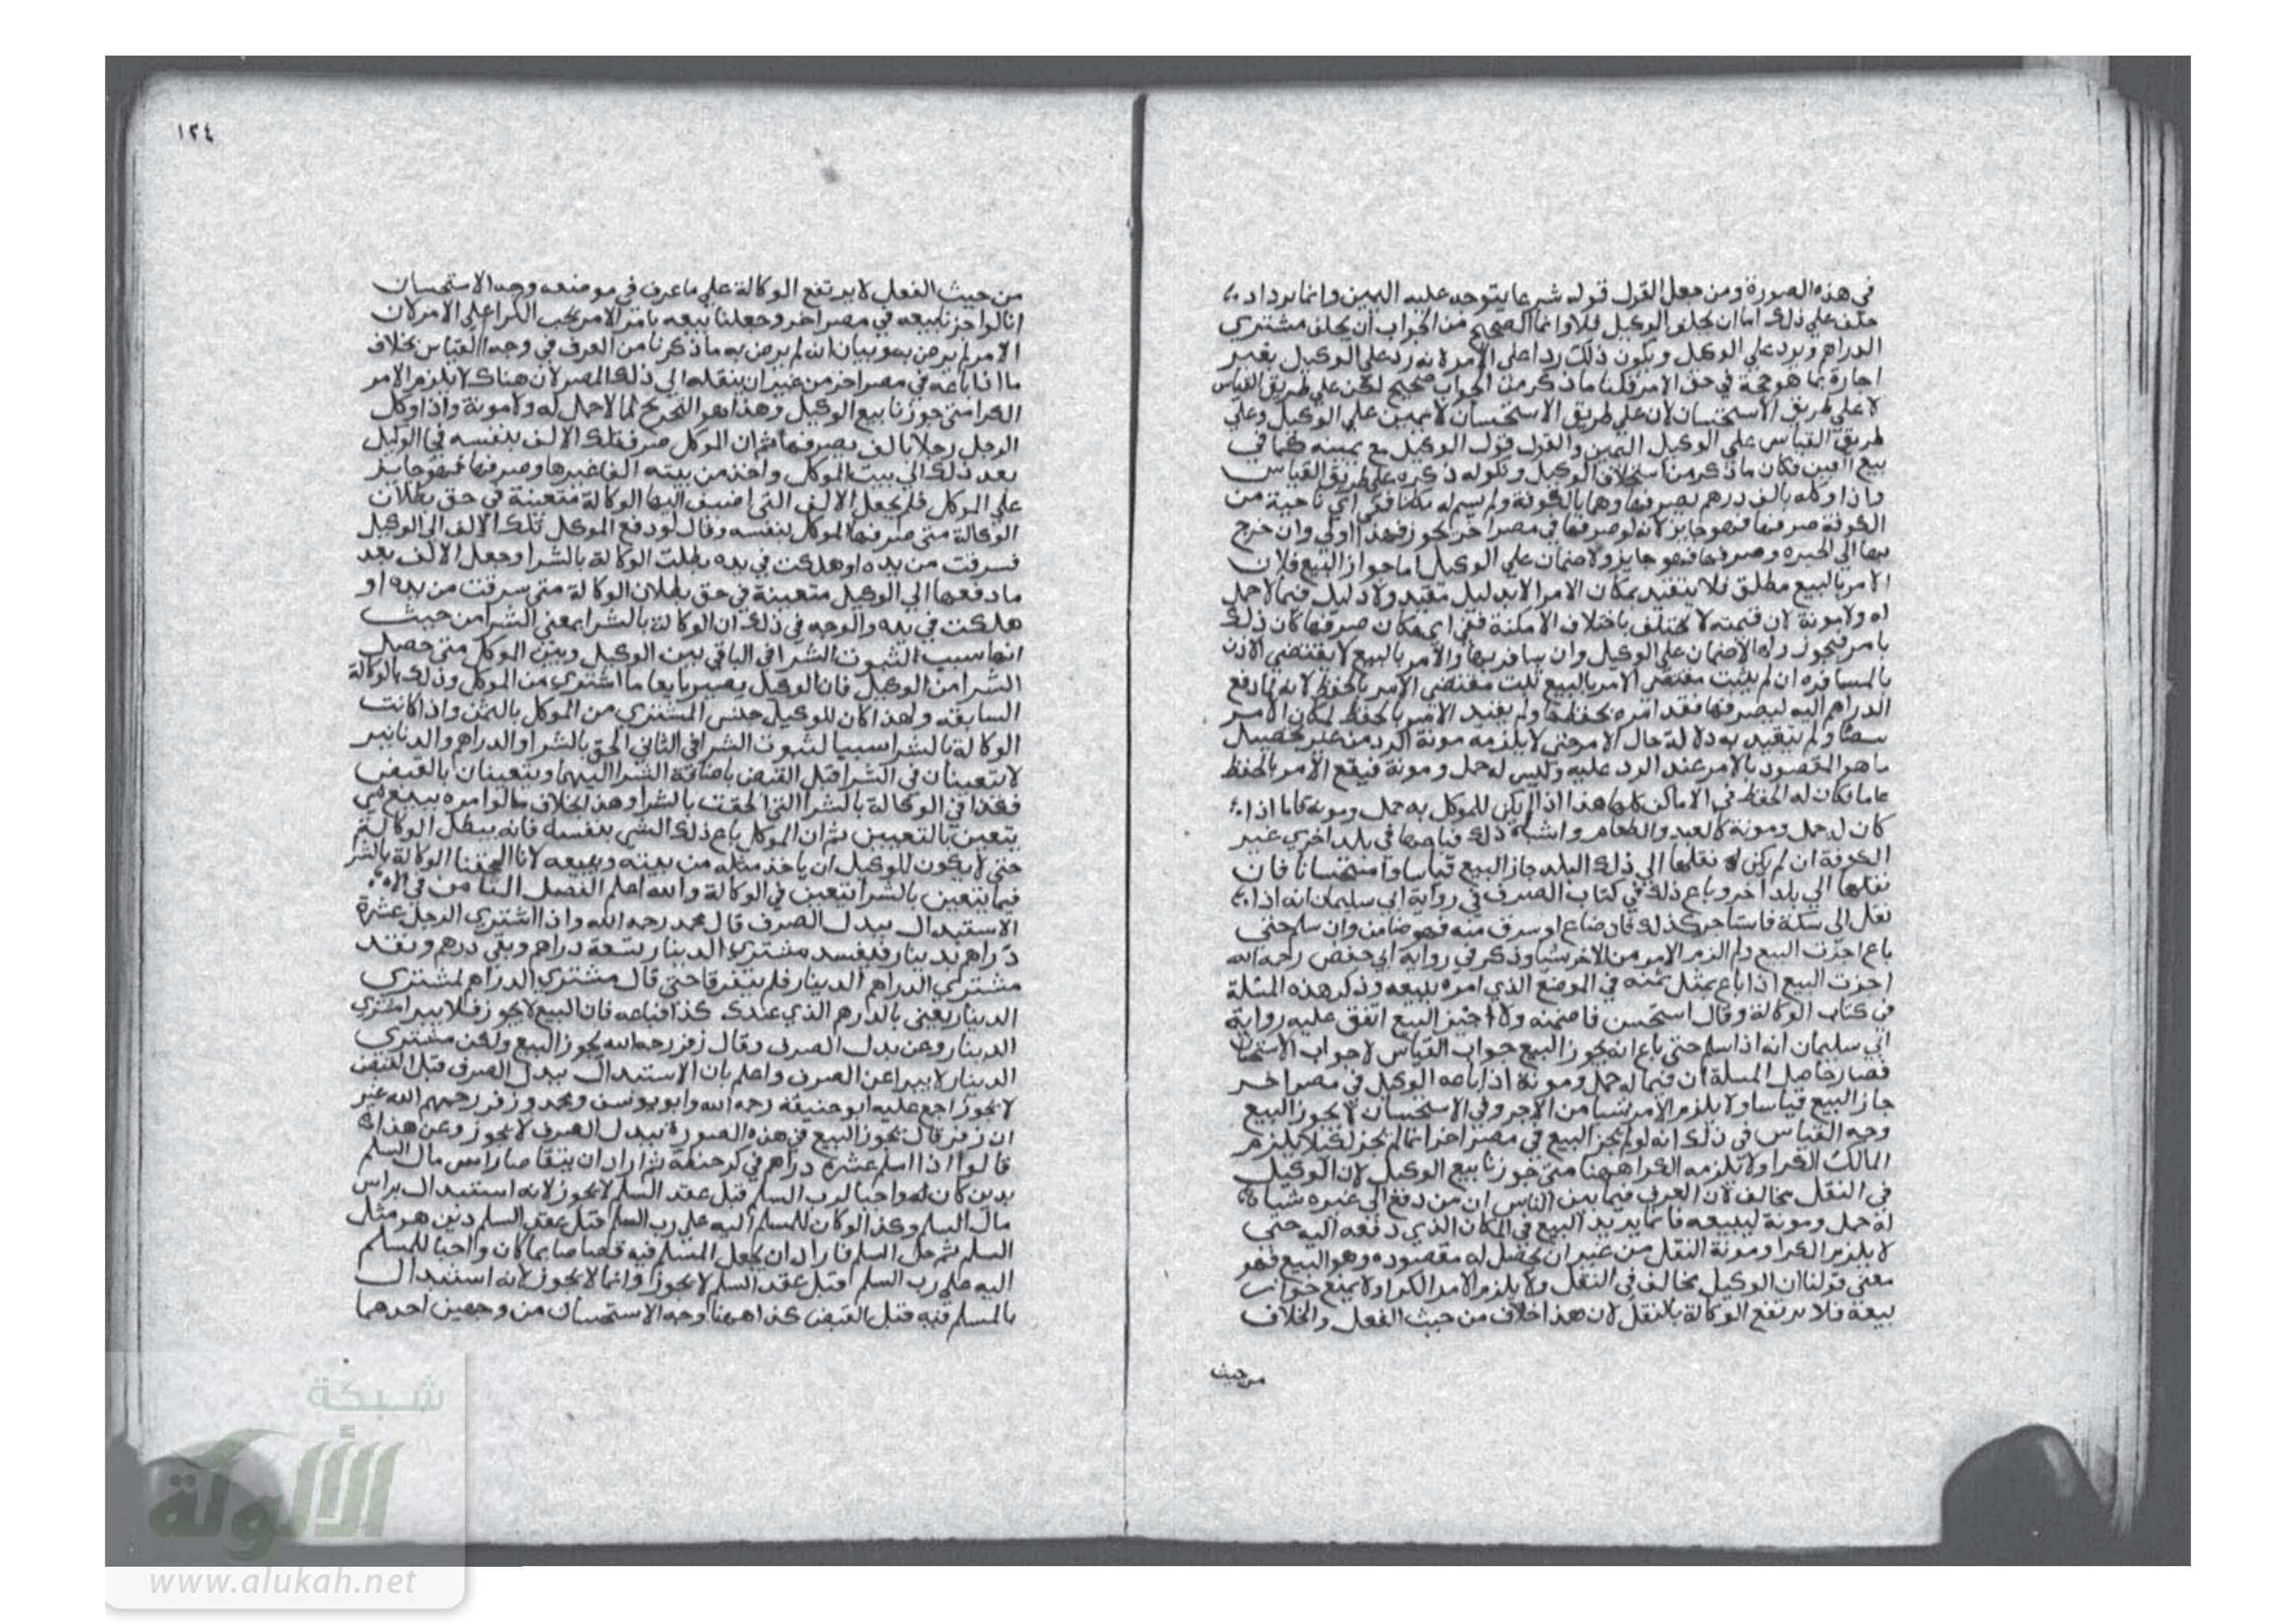 في هذه الصورة ومن جعل القول قوله شرعا يتوجه عليه اليمين وانما يرد اد
حلف علي ذلك اما ان يحلف الوكيل فلا وانما الصحيح من الجواب ان يحلف مشتري
الدراهم ويرد علي الوكيل ويكون ذلك ردا علي الامر لانه رد علي الوكيل بغير
اجارة بما هو حجة في حق الامر قلنا ما ذكر من الجواب صحيح لكن علي طريق القياس
لا علي طريق الاستحسان لان علي طريق الاستحسان لا يمين علي الوكيل وعلي
طريق القياس علي الوكيل اليمين والقول قول الوكيل مع يمينه كما في
بيع العين فكان ما ذكر من استحلاف الوكيل ونكوله ذكره علي طريق القياس
واذا وكله بالف درهم يصرفها وهما بالكوفة ولم يسم له مكانا ففي اي ناحية من
الكوفة صرفها فهو جايز لانه لو صرفها في مصر اخر يجوز فهذا اولي وان خرج
بها الي الحيرة وصرفها فهو جايز ولا ضمان علي الوكيل اما جواز البيع فلان
الامر بالبيع مطلق فلا يتقيد بمكان الامر الا بدليل مقيد ولا دليل فيما لا حمل
له ولا مونة لان قيمته لا تختلف باختلاف الامكنة ففي اي مكان صرفها كان ذلك
بامر فيجوز ولا ضمان علي الوكيل وان سافر بها والامر بالبيع لا يقتضي الاذن
بالمسافرة ان لم يثبت مقتضي الامر بالبيع ثبت مقتضي الامر بالحفظ لانه لما دفع
الدراهم اليه ليصرفها فقد امره بحفظها ولم يقيد الامر بالحفظ لمكان الامر
نصا ولم يتقيد به دلالة حال الامر حتي لا يلزمه مونة الرد من غير تحصيل
ما هو المقصود بالامر عند الرد عليه وليس له حمل ومونة فيقع الامر بالحفظ
عاما فكان له الحفظ في الاماكن كلها هذا اذا لم يكن للموكل به حمل ومونة فاما اذا
كان له حمل ومونة كالعبد والطعام واشباه ذلك فباعها في بلد اخري غير
الكوفة ان لم يكن له نقلها الي ذلك البلد جاز البيع قياسا واستحسانا فان
نقلها الي بلد اخر وباع ذلك في كتاب الصرف في رواية ابي سليمان انه اذا
نقل الي سكة فاستاجر كذلك فان ضاع او سرق منه فهو ضامن وان سلم حتي
باع اجزت البيع ولم الزم الامر من الاجر شيا وذكر في رواية ابي حفص رحمه الله
اجزت البيع اذا باع بمثل ثمنه في الموضع الذي امره ببيعه وذكر هذه المسئلة
في كتاب الوكالة وقال استحسن فاضمنه ولا اجيز البيع اتفق عليه رواية
ابي سليمان انه اذا سلم حتي باع انه يجوز البيع جواب القياس لا جواب الاستحسان
فصار حاصل المسلة ان فيما له حمل ومونة اذا باعه الوكيل في مصر اخر
جاز البيع قياسا ولا يلزم الامر شيا من الاجر وفي الاستحسان لا يجوز البيع
وجه القياس في ذلك انه لو لم يجز البيع في مصر اخر انما لم يجز لكيلا يلزم
المالك الكرا ولا يلزمه الكرا ههنا متي جوزنا بيع الوكيل لان الوكيل
في النقل مخالف لان العرف فيما بين الناس ان من دفع الي غيره شيا
له حمل ومونة ليبيعه فانما يريد البيع في المكان الذي دفعه اليه حتي
لا يلزم الكرا ومونة النقل من غير ان يحصل له مقصوده وهو البيع فهو
معني قولنا ان الوكيل مخالف في النقل ولا يلزم الامر الكرا ولا يمنع جواز
بيعه فلا يرتفع الوكالة بالنقل لان هذا خلاف من حيث الفعل والخلاف
من حيث
١٢٤
من حيث الفعل لا يرتفع الوكالة علي ما عرف في موضعه وجه الاستحسان
انا لو اجزنا بيعه في مصر اخر وجعلنا بيعه بامر الامر يجب الكرا علي الامر لان
الامر لم يرض به وبيان انه لم يرض به ما ذكرنا من العرف في وجه القياس بخلاف
ما اذا باعه في مصر اخر من غير ان ينقله الي ذلك المصر لان هناك لا يلزم الامر
الكرا متي جوزنا بيع الوكيل وهذا هو التحريج لما لا حمل له ولا مونة واذا وكل
الرجل رجلا بالف يصرفها ثم ان الموكل صرف تلك الالف بنفسه فجا الوكيل
بعد ذلك الي بيت الموكل واخذ من بيته الفا غيرها وصرفها فهو جايز
علي الموكل فلم يجعل الالف التي اضيف اليها الوكالة متعينة في حق بطلان
الوكالة متي صرفها الموكل بنفسه وقال لو دفع الموكل تلك الالف الي الوكيل
فسرقت من يده او هلكت في يده بطلت الوكالة بالشرا وجعل الالف بعد
ما دفعها الي الوكيل متعينة في حق بطلان الوكالة متي سرقت من يده او
هلكت في يده والوجه في ذلك ان الوكالة بالشرا بمعني الشرا من حيث
انها سبب لثبوت الشرا في الباقي بين الوكيل وبين الموكل متي حصل
الشرا من الوكيل فان الوكيل يصير بايعا ما اشتري من الموكل وذلك بالوكالة
السابقة ولهذا كان للوكيل حبس المشتري من الموكل بالثمن واذا كانت
الوكالة بالشرا سببا لثبوت الشرا في الثاني الحق بالشرا والدراهم والدنانير
لا تتعينان في الشرا قبل القبض باضافة الشرا اليهما ويتعينان بالقبض
فكذا في الوكالة بالشرا التي الحقت بالشرا وهذا بخلاف ما لو امره ببيع شي
يتعين بالتعيين ثم ان الموكل باع ذلك الشي بنفسه فانه يبطل الوكالة
حتي لا يكون للوكيل ان ياخذ مثله من بيته ويبيعه لانا الحقنا الوكالة بالشرا
فيما يتعين بالشرا يتعين في الوكالة والله اعلم الفصل الثامن في
الاستبدال ببدل الصرف قال محمد رحمه الله واذا اشتري الرجل عشرة
دراهم بدينار فنقد مشتري الدينار تسعة دراهم وبقي درهم ونقد
مشتري الدراهم الدينار فلم يتفرقا حتي قال مشتري الدراهم لمشتري
الدينار بعني بالدرهم الذي عندك كذا فباعه فان البيع لا يجوز فلا يبرا مشتري
الدينار وعن بدل الصرف وقال زفر رحمه الله يجوز البيع ولكن مشتري
الدينار لا يبرا عن الصرف واعلم بان الاستبدال ببدل الصرف قبل القبض
لا يجوز اجمع عليه ابو حنيفة رحمه الله وابو يوسف ومحمد وزفر رحمهم الله غير
ان زفر قال يجوز البيع في هذه الصورة ببدل الصرف لا يجوز وعن هذا
قالوا اذا اسلم عشرة دراهم في كر حنطة ثم اراد ان يتقاصا راس مال السلم
بدين كان له واجبا لرب السلم قبل عقد السلم لا يجوز لانه استبدال براس
مال السلم وكذا لو كان للمسلم اليه علي رب السلم قبل عقد السلم دين هو مثل
السلم ثم حل السلم فاراد ان يجعل المسلم فيه قصاصا بما كان واجبا للمسلم
اليه علي رب السلم قبل عقد السلم لا يجوز وانما لا يجوز لانه استبدال
بالمسلم فيه قبل القبض كذا ههنا وجه الاستحسان من وجهين احدهما
شبكة
الألوكة
www.alukah.net